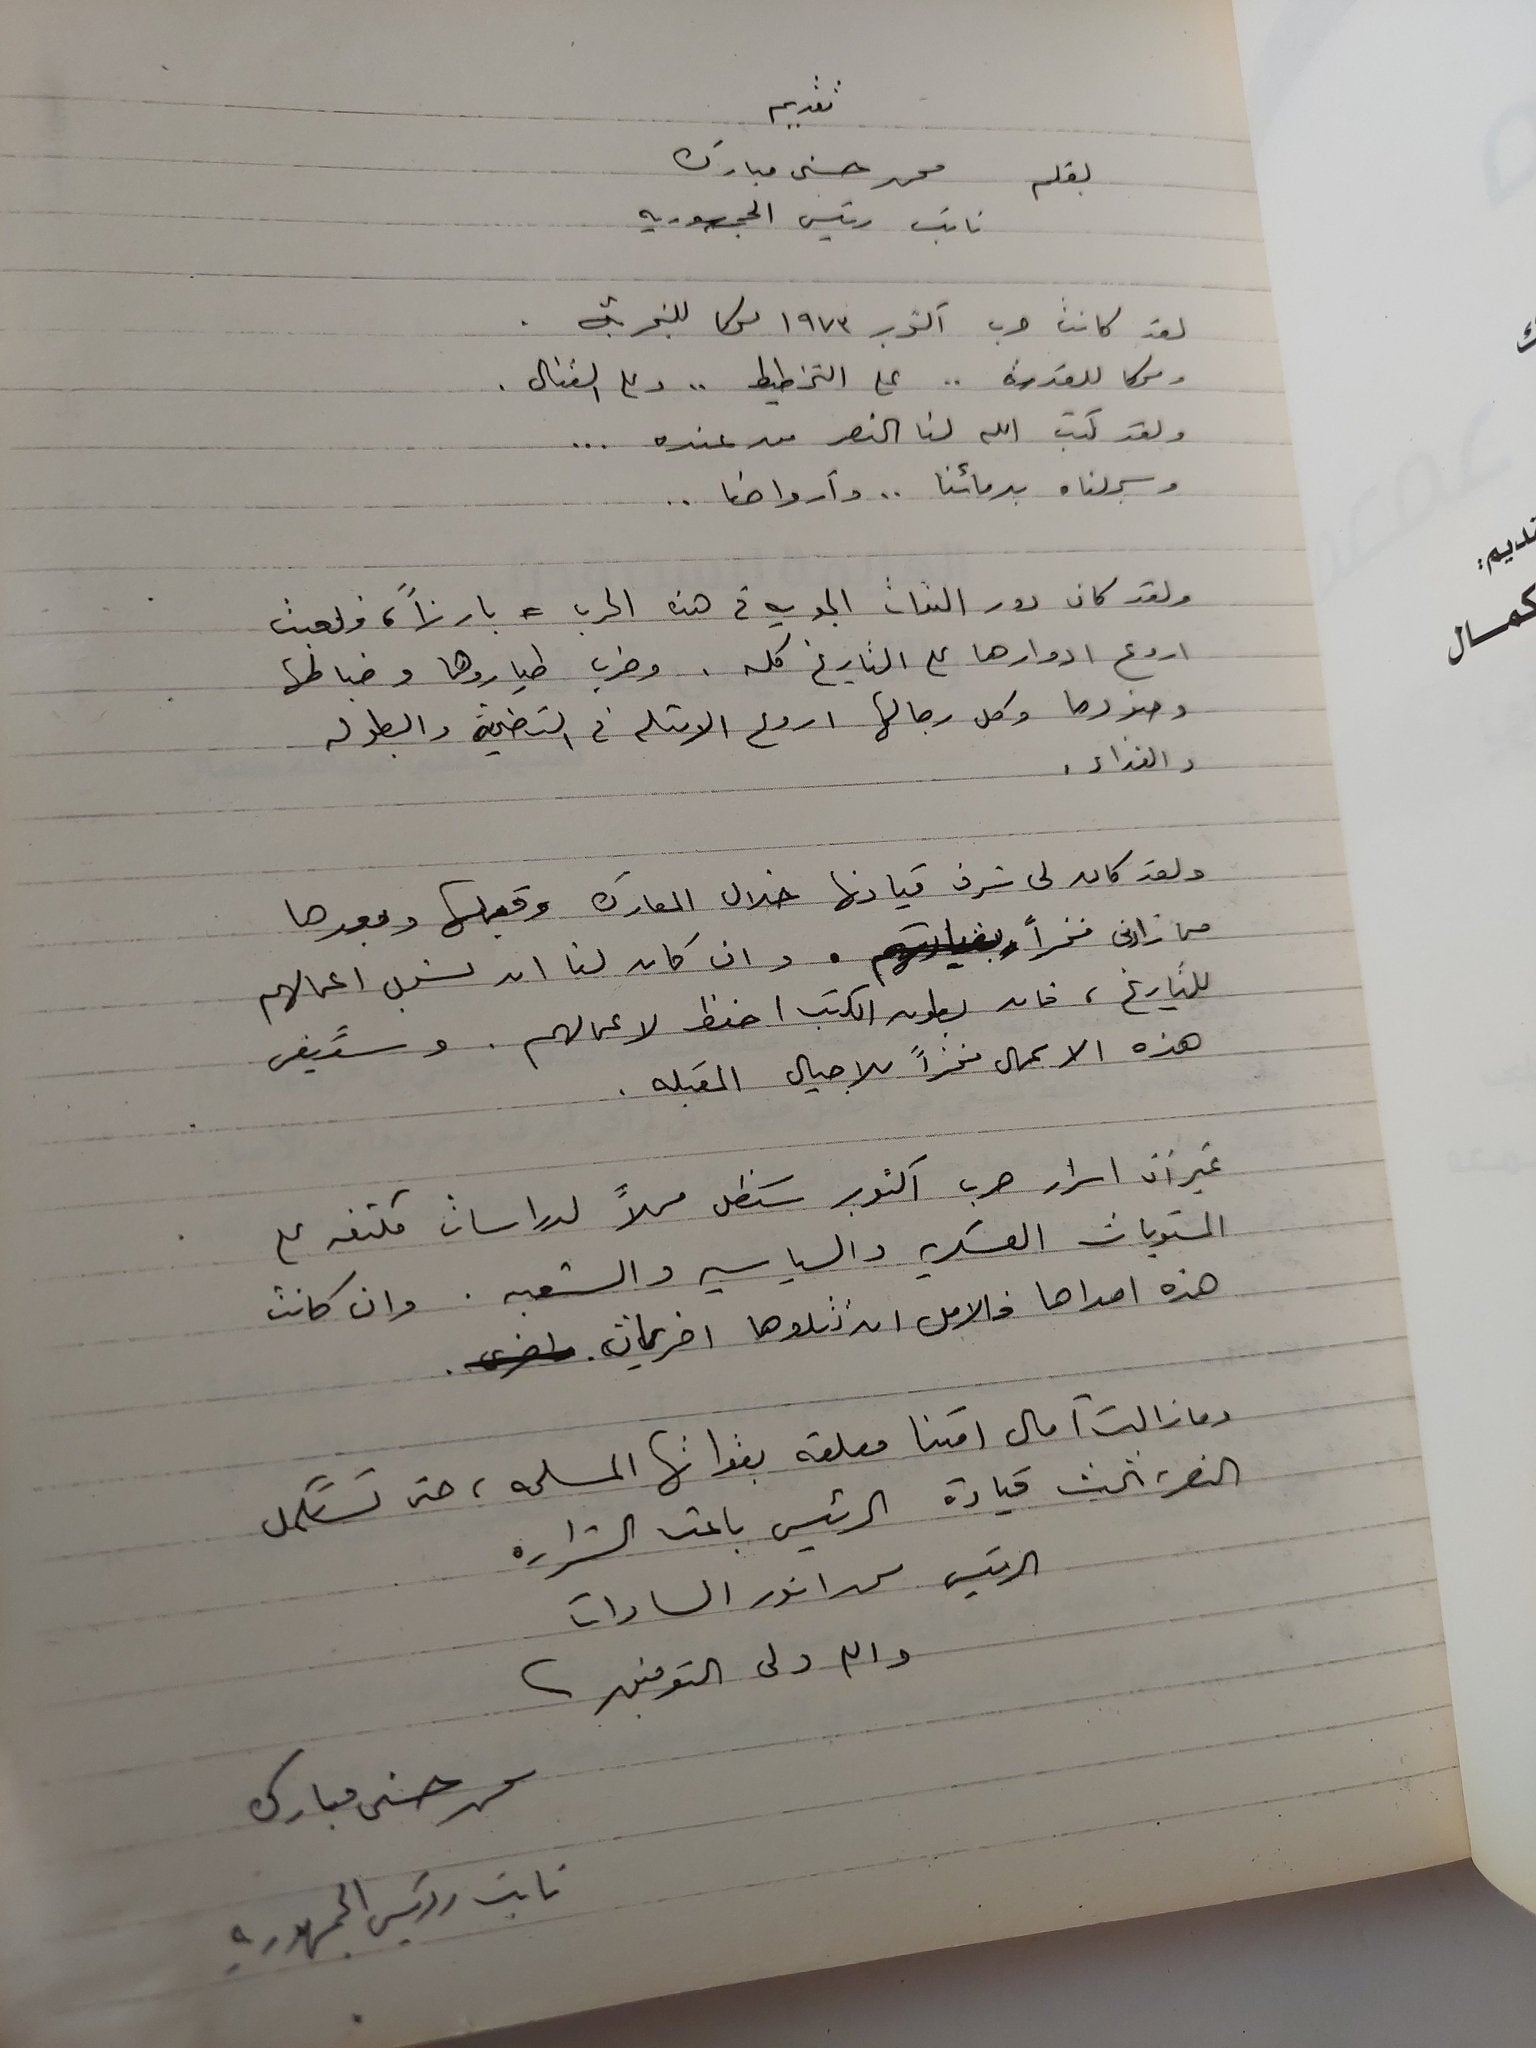 تقديم
بقلم محمد حسنى مبارك
نائب رئيس الجمهوريه
لقد كانت حرب أكتوبر ١٩٧٣ محكا للتجربة .
ومحكا للقدرة .. على التخطيط .. وعلى القتال .
ولقد كتب الله لنا النصر من عنده ...
وسجلناه بدمائنا .. وأرواحنا ..
ولقد كان دور القوات الجويه فى هذه الحرب بارزاً، ولعبت
اروع ادوارها على التاريخ كله . وضرب طياروها وضباطها
وجنودها وكل رجالها اروع الامثله فى التضحية والبطوله
والفداء .
ولقد كان لى شرف قيادتها خلال المعارك وقبلها وبعدها
مما زادنى فخراً . وان كان لنا ان نسجل اعمالهم
للتاريخ ، فان بطون الكتب احفظ لاعمالهم . وستبقى
هذه الاعمال فخراً للاجيال المقبله .
غير أن اسرار حرب أكتوبر ستظل محلاً لدراسات مكثفه على
المستويات العسكريه والسياسيه والشعبيه . وان كانت
هذه احداها فالامل ان تتلوها اخريات .
ومازالت آمال امتنا معلقه بقواتها المسلحه ، حتى تستكمل
النصر تحت قيادة الرئيس باعث الشراره
الرئيس محمد انور السادات
والله ولى التوفيق
محمد حسنى مبارك
نائب رئيس الجمهوريه
ك
تقديم:
كمـال